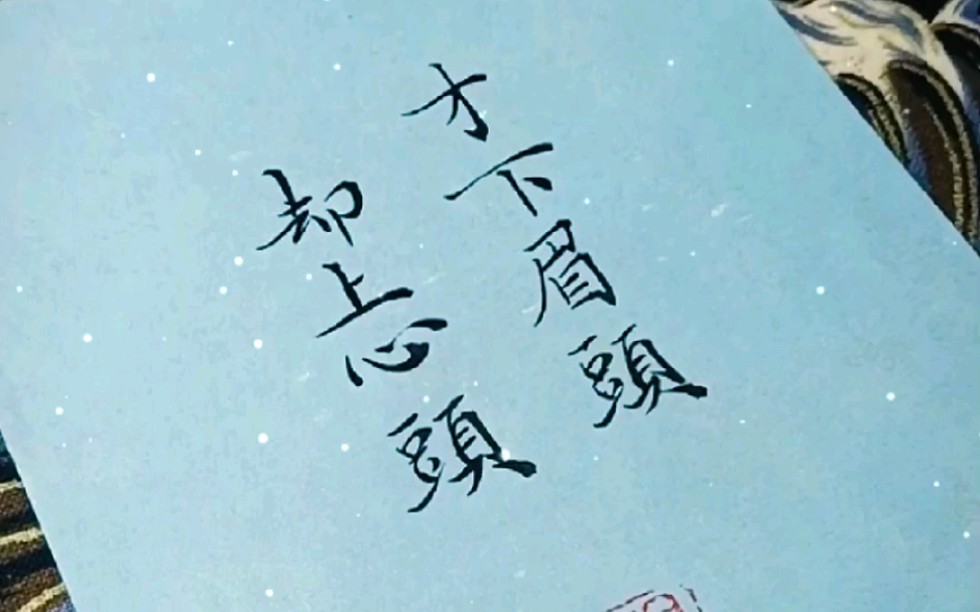 才下眉頭
却上心頭